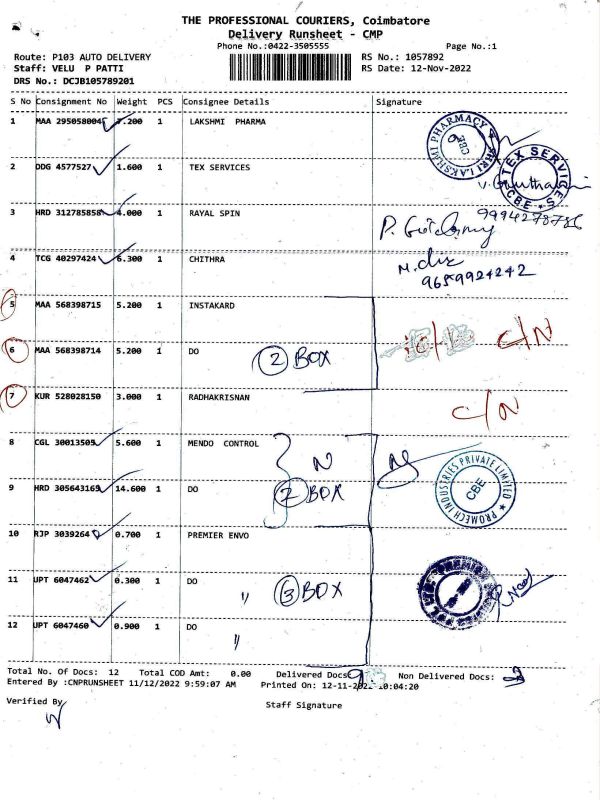 THE PROFESSIONAL COURIERS, Coimbatore
Delivery Runsheet - CMP
Phone No.:0422-3505555 Page No.:1
Route: P103 AUTO DELIVERY RS No.: 1057892
Staff: VELU P PATTI RS Date: 12-Nov-2022
DRS No.: DCJB105789201
S No Consignment No Weight PCS Consignee Details Signature
1 MAA 295058004 7.200 1 LAKSHMI PHARMA
SHRI LAKSHMI PHARMACY CBE
2 DDG 4577527 1.600 1 TEX SERVICES
TEX SERVICES CBE
3 HRD 312785858 4.000 1 RAYAL SPIN
9994278786
4 TCG 40297424 6.300 1 CHITHRA
9659924242
5 MAA 568398715 5.200 1 INSTAKARD
6 MAA 568398714 5.200 1 DO 2 BOX C/N C/N
7 KUR 528028150 3.000 1 RADHAKRISNAN C/N
8 CGL 30013505 5.600 1 MENDO CONTROL N
PROMECH INDUSTRIES PRIVATE LIMITED CBE
9 HRD 305643169 14.600 1 DO 2 BOX
10 RJP 3039264 0.700 1 PREMIER ENVO
11 UPT 6047462 0.300 1 DO " 3 BOX
12 UPT 6047460 0.900 1 DO "
Total No. Of Docs: 12 Total COD Amt: 0.00 Delivered Docs: 9 Non Delivered Docs: 3
Entered By :CNPRUNSHEET 11/12/2022 9:59:07 AM Printed On: 12-11-2022 10:04:20
Verified By Staff Signature